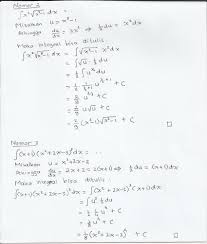 Nomor 2
∫x²√(x³-1) dx = ...
Misalkan u = x³-1
Sehingga du/dx = 3x² ⇒ 1/3 du = x² dx
Maka integral bisa ditulis
∫x²√(x³-1) dx = ∫√(x³-1) x² dx
= ∫√u · 1/3 du
= 1/3 ∫u^(1/2) du
= 2/9 u^(3/2) + C
= 2/9 u√u + C
= 2/9 (x³-1)√(x³-1) + C
Nomor 3
∫(x+1)(x²+2x-3)³ dx = ...
Misalkan u = x²+2x-3
Sehingga du/dx = 2x+2 = 2(x+1) ⇒ 1/2 du = (x+1) dx
Maka integral bisa ditulis
= ∫u³ 1/2 du
+ C
+ C